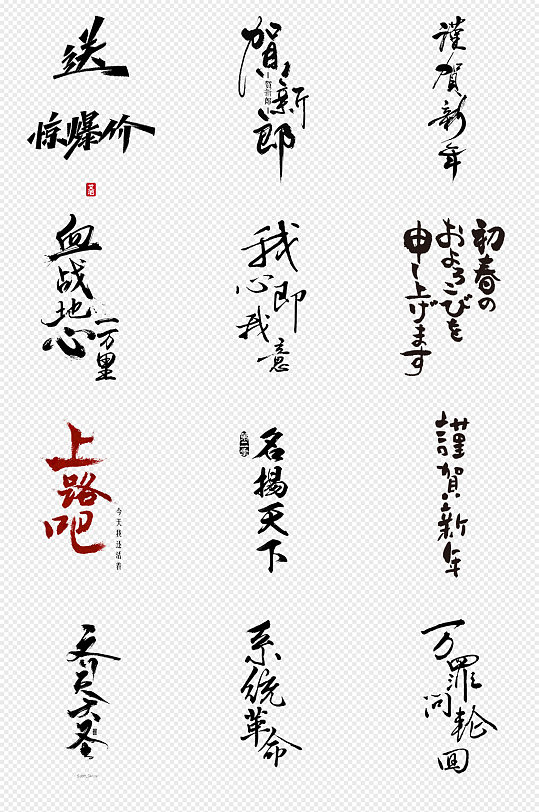 送
惊爆价
賀新郎
賀新郎
謹賀新年
血战地心
一万里
我心即我意
初春の
およろこびを
申し上げます
上路吧
今天我还活着
名揚天下
謹賀新年
系统革命
万罪问轮回